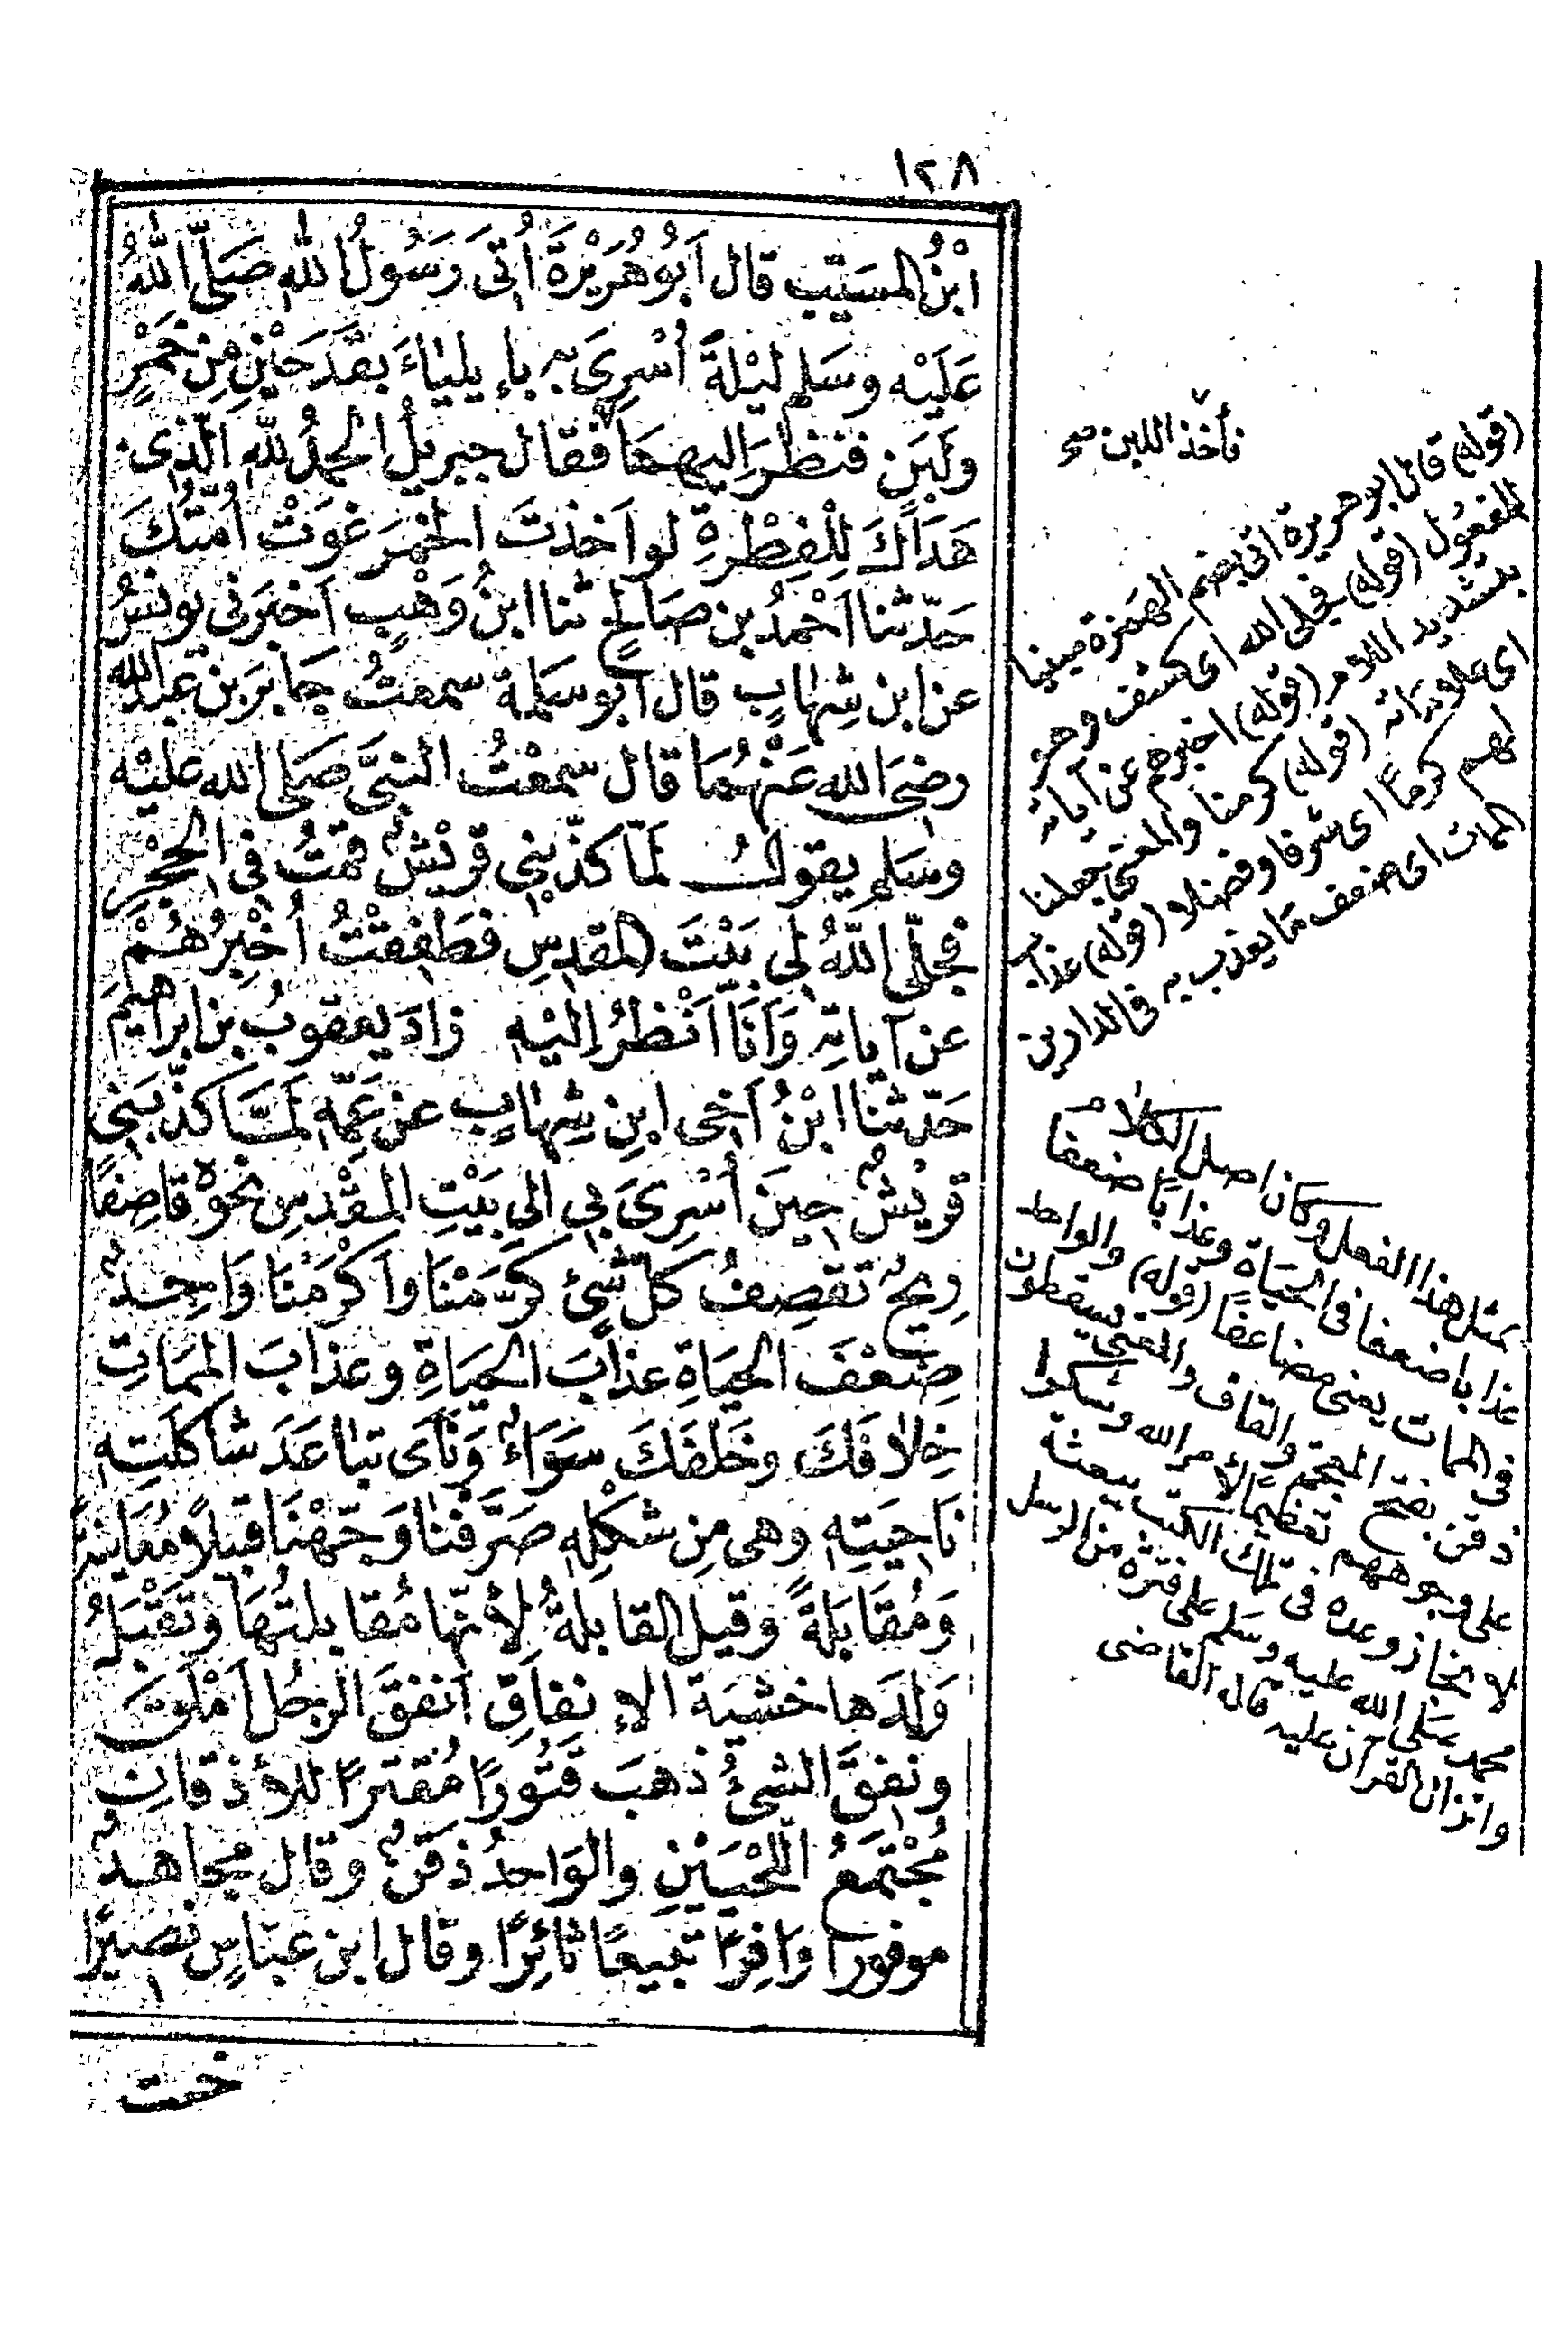 ١٢٨
ابْنُ المسَيّب قال اَبُو هُرَيْرَةَ اُتِىَ رَسُولُ اللهِ صَلّى اللهُ
عَلَيْه وسَلم ليْلَةَ اُسْرِىَ به بإيلياءَ بقَدَحَيْنِ مِن خَمْرٍ
ولَبَنٍ فنظَرَ اليهمَا فقال جبريلُ الحمدُ للهِ الّذى
هَدَاكَ لِلْفِطْرةِ لو اَخذتَ الخمْرَ غوَتْ اُمّتُكَ
حَدّثنا اَحْمدُ بن صَالحٍ ثنا ابنُ وَهْبٍ اَخبَرنى يونسُ
عن ابن شِهابٍ قال اَبو سَلمة سمعتُ جَابرَ بن عبدالله
رضىَ الله عَنْهُمَا قال سمعْتُ النبىَّ صَلى الله عليْه
وسَلم يقولُ لَمّا كذّبنى قريْشٌ قمتُ فى الحِجْرِ
فجلّى اللهُ لى بَيْتَ المقدِسِ فطَفِقْتُ اُخْبِرُهُمْ
عن آياتهِ وَاَنَا اَنْظرُ اِليْه زادَ يعقوبُ بن ابراهيم
حَدّثنا ابْنُ اَخى ابنِ شِهابٍ عن عَمّهِ لَمَّا كذّبَنى
قريْشٌ حينَ اُسْرِىَ بى الى بَيْتِ المقْدِسِ نحوَهُ قاصِفًا
رِيحٌ تقصِفُ كلّ شئ كرّمْنَا واَكْرَمْنَا وَاحِدٌ
ضِعْفَ الحيَاةِ عذابَ الحيَاةِ وعذابَ الممَاتِ
خِلافَكَ وخَلفَكَ سَوَاءٌ وَنَآى تباعَدَ شاكلَتِهِ
نَاحِيَتِه وهى مِن شكْلِهِ صَرَّفْنا وَجّهْنَا قبَلاً مُعَاينةً
وَمُقَابَلةً وقيل القابلةُ لأنّها مُقابلتُهَا وَتَقْبَلُ
وَلدَها خشيَة الإنفاقِ اَنفقَ الرجُل اَمْلَقَ
ونفقَ الشئُ ذهبَ قَتُورًا مُقترًا للأذقانِ
مُجْتَمَعُ اللّحْيَيْنِ والوَاحدُ ذقَنٌ وقال مجاهدٌ
موفورًا وَافِرًا تبيعًا ثائِرًا وقال ابن عبّاسٍ نصيرًا
خبت
تأخذ اللبن صح
(قوله) قال ابو هريرة اتى بضم الهمزة مبنيا
للمفعول (قوله) فجلى الله اى كشف وهو
بتشديد اللام (قوله) اخبرهم عن آياته
اى علاماته (قوله) كرمنا والمعنى جعلنا
لهم كرمًا اى شرفا وفضلا (قوله) عذاب
الممات اى ضعف مَا يعذب به فى الدارين
بمثل هذا الفعل وكان اصل الكلام
عذابا ضعفا فى الحيَاة وعذابًا ضعفا
فى الممات يعنى مضاعفًا (قوله) والواحد
ذقن بفتح المعجمة والقاف والمعنى يسقطون
على وجوههم تعظيمًا لأمر الله وشكرا
لانجاز وعده فى تلك الكتب ببعثة
محمد صَلى الله عليه وسَلم على فترة من الرسل
وانزال القرآن عليه قاله القاضى